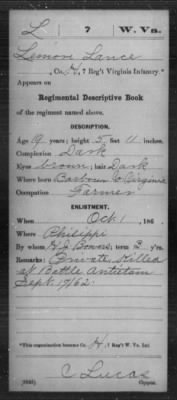 L | 7 | W. Va.
Lemon Lance
, Co. H, 7 Reg't Virginia Infantry*
Appears on
Regimental Descriptive Book
of the regiment named above.
DESCRIPTION.
Age 19 years; height 5 feet 11 inches.
Complexion Dark
Eyes brown; hair Dark
Where born Barbour Co Virginia
Occupation Farmer
ENLISTMENT.
When Oct 1, 186 .
Where Philippi
By whom H. J. Bowers; term 3 y'rs.
Remarks: Private Killed
at Battle Antietam
Sept 17/62
*This organization became Co. H, 7 Reg't W. Va. Inf.
C Lucas
Copyist.